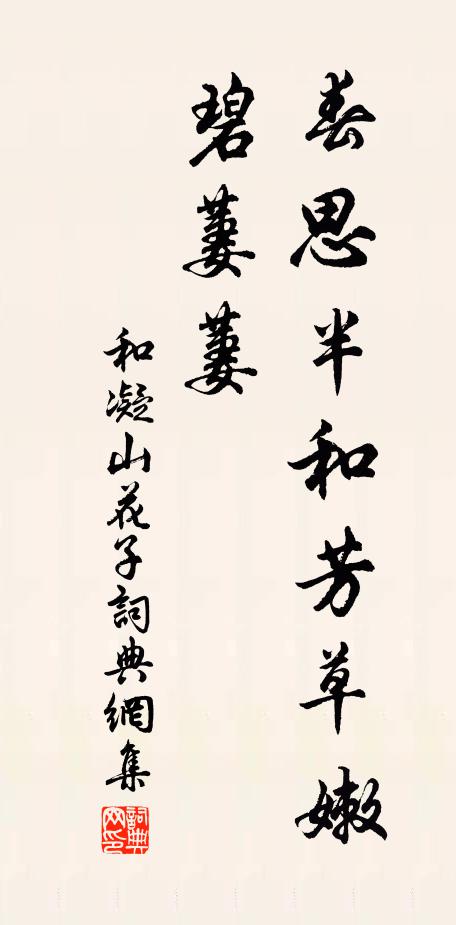 春思半和芳草嫩
碧萋萋
和凝山花子詞典網集
詞典网印